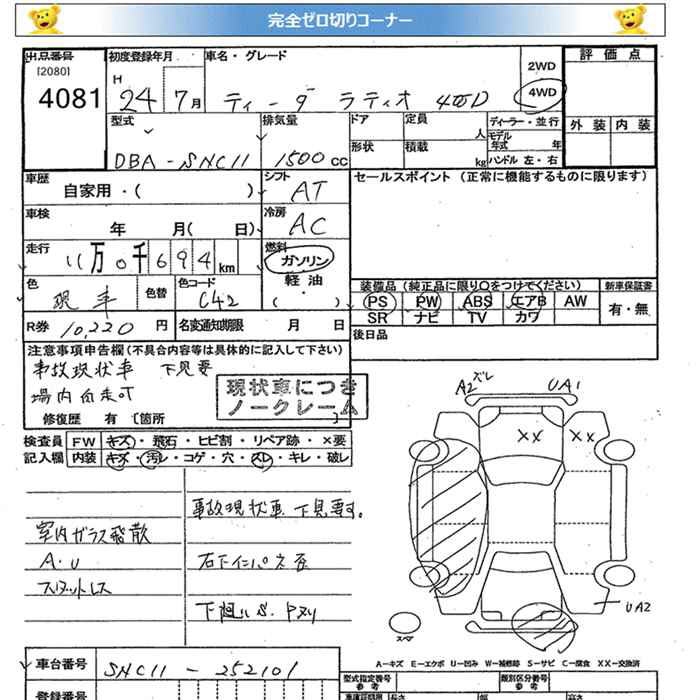 完全ゼロ切りコーナー
出品番号
[2080]
4081
初度登録年月
H 24 7月
車名・グレード
ティーダ ラティオ 4WD
2WD
4WD
評価点
外装 内装
型式
DBA-SNC11
排気量
1500 cc
ドア
定員
人
形状
積載
kg
ディーラー・並行
モデル年式 年
ハンドル 左・右
車歴
自家用・( )
シフト
AT
セールスポイント (正常に機能するものに限ります)
車検
年 月( 日)
冷房
AC
走行
11万0千694km
燃料
ガソリン
軽油
( )
色
現車
色替
色コード
C42
装備品 (純正品に限り○をつけてください)
新車保証書
PS PW ABS エアB AW
SR ナビ TV カワ
有・無
R券 10,220 円
名変通知期限 月 日
後日品
注意事項申告欄(不具合内容等は具体的に記入して下さい)
事故現状車 下見要
場内自走可
現状車につき
ノークレーム
修復歴 有 〔箇所 〕
検査員記入欄
FW キズ・飛石・ヒビ割・リペア跡・×要
内装 キズ・汚レ・コゲ・穴・スレ・キレ・破レ
A2 ズレ
UA1
XX XX
UA2
スペア
室内ガラス飛散
A.U
スタットレス
事故現状車 下見要す.
右下インパネ歪
A-キズ E-エクボ U-凹み W-補修跡 S-サビ C-腐食 XX-交換済
車台番号 SNC11-252101
登録番号
型式指定番号
参考
類別区分番号
参考
長さ
幅
高さ